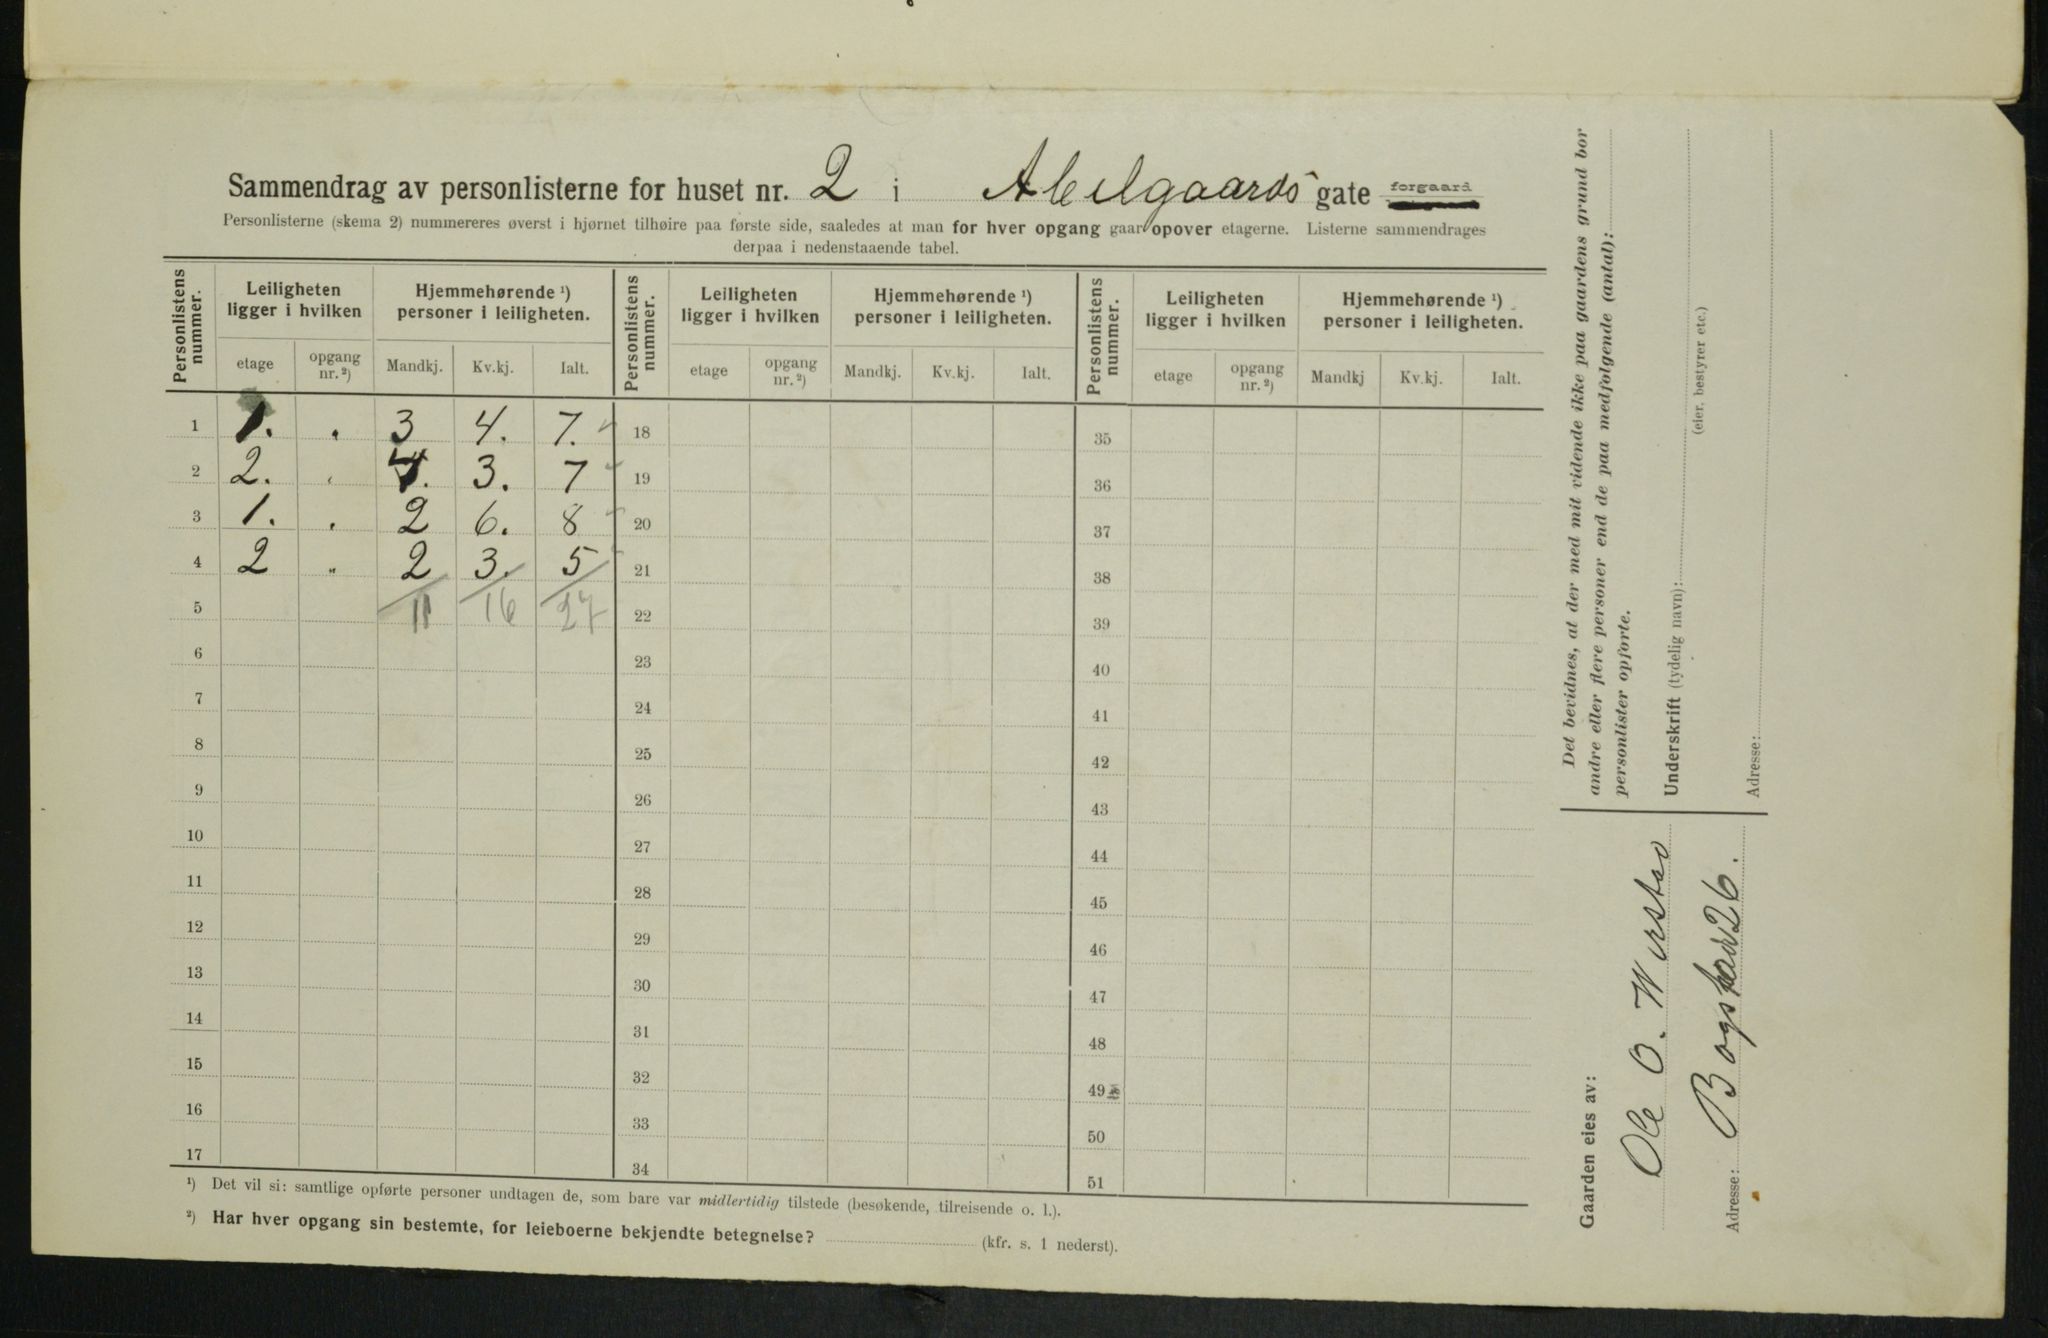 Sammendrag av personlisterne for huset nr. 2 i Abelgaards gate forgaard
Personlisterne (skema 2) nummereres øverst i hjørnet tilhøire paa første side, saaledes at man for hver opgang gaar opover etagerne. Listerne sammendrages
derpaa i nedenstaaende tabel.
Personlistens nummer. Leiligheten ligger i hvilken Hjemmehørende ¹) personer i leiligheten. Personlistens nummer. Leiligheten ligger i hvilken Hjemmehørende ¹) personer i leiligheten. Personlistens nummer. Leiligheten ligger i hvilken Hjemmehørende ¹) personer i leiligheten.
etage opgang nr. ²) Mandkj. Kv.kj. Ialt. etage opgang nr. ²) Mandkj. Kv.kj. Ialt. etage opgang nr. ²) Mandkj Kv.kj. Ialt.
1 1. " 3 4. 7. 18 35
2 2. " 4. 3. 7 19 36
3 1. " 2 6. 8 20 37
4 2 " 2 3. 5 21 38
5 11 16 27 22 39
6 23 40
7 24 41
8 25 42
9 26 43
10 27 44
11 28 45
12 29 46
13 30 47
14 31 48
15 32 49
16 33 50
17 34 51
¹) Det vil si: samtlige opførte personer undtagen de, som bare var midlertidig tilstede (besøkende, tilreisende o. l.).
²) Har hver opgang sin bestemte, for leieboerne bekjendte betegnelse? (kfr. s. 1 nederst).
Det bevidnes, at der med mit vidende ikke paa gaardens grund bor
andre eller flere personer end de paa medfølgende (antal):
personlister opførte.
Underskrift (tydelig navn):
(eier, bestyrer etc.)
Adresse:
Gaarden eies av:
Ole O.
Adresse: 26.